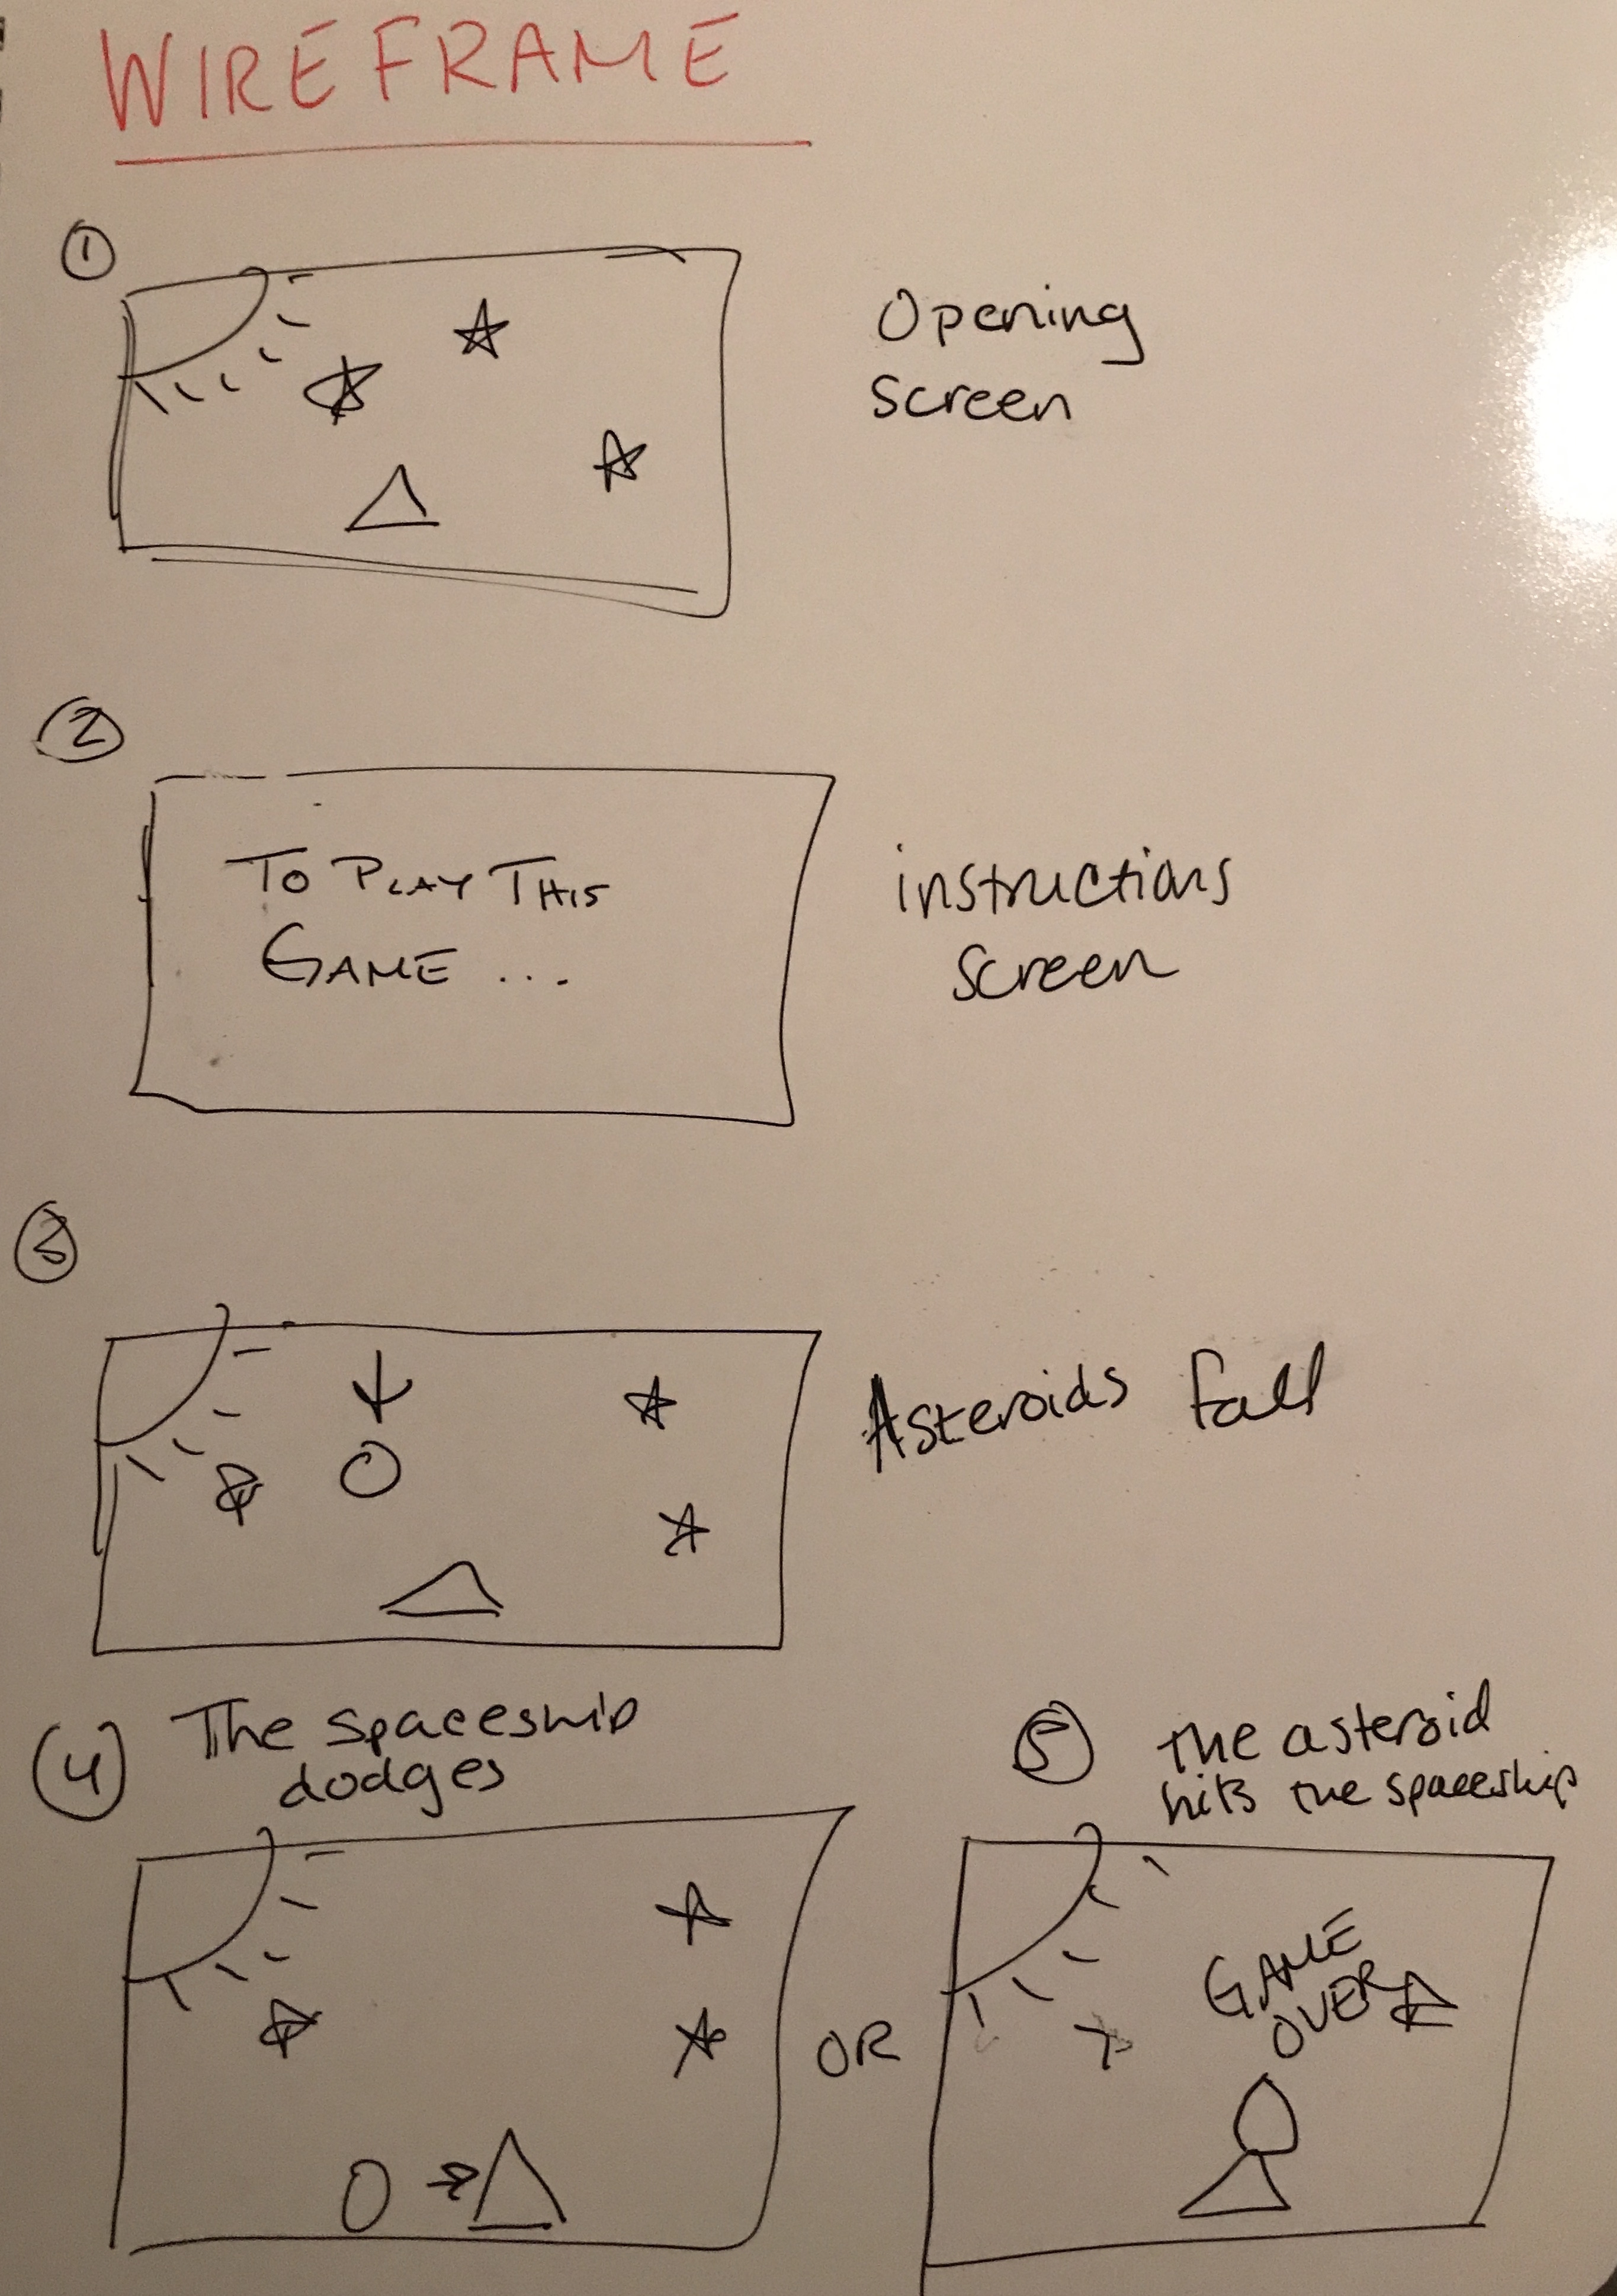 WIREFRAME
1
Opening
screen
2
TO PLAY THIS
GAME ...
instructions
screen
3
Asteroids fall
4 The spaceship
dodges
5 the asteroid
hits the spaceship
OR
GAME
OVER